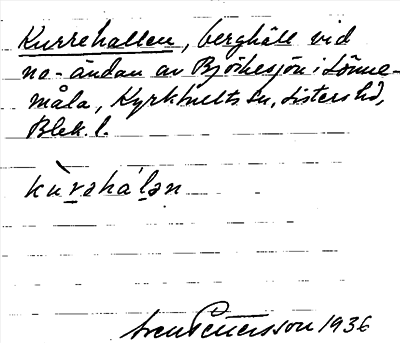 Kurrehallen, berghäll vid
no-ändan av Björkesjön i Lönne-
måla, Kyrkhults sn, Listers hd,
Blek. l.
kùrəháļən
Sven Petersson 1936